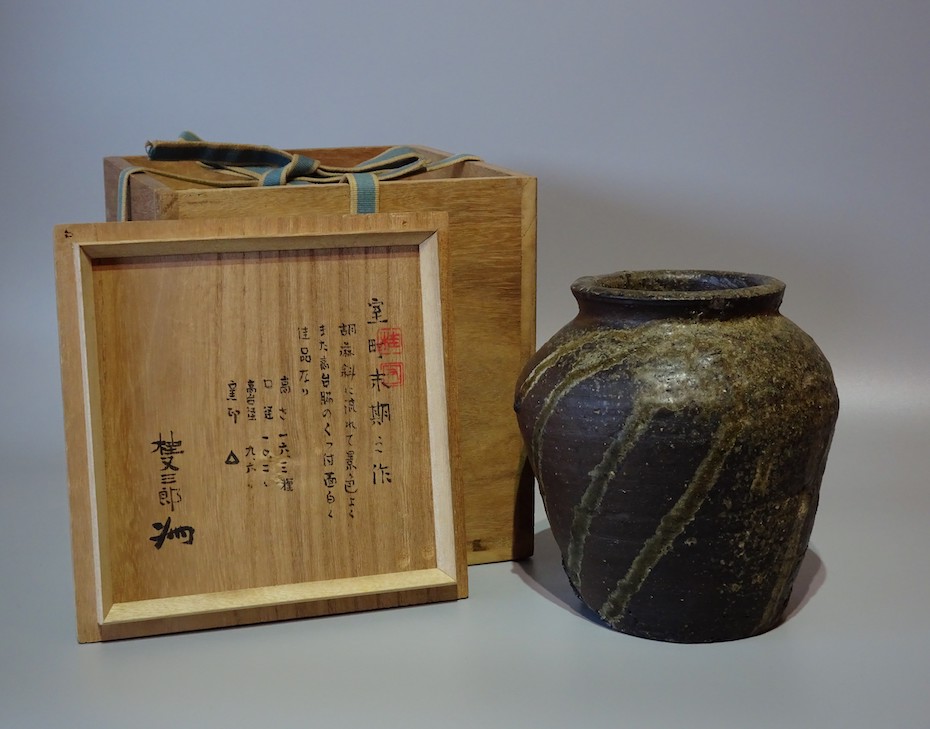 室町末期之作
胡麻斜に流れて景色よく
また高台脇のくっ付面白く
佳品なり
高さ 一六.三糎
口径 一〇.二〃
高台径 九.六〃
窯印 △
桂又三郎